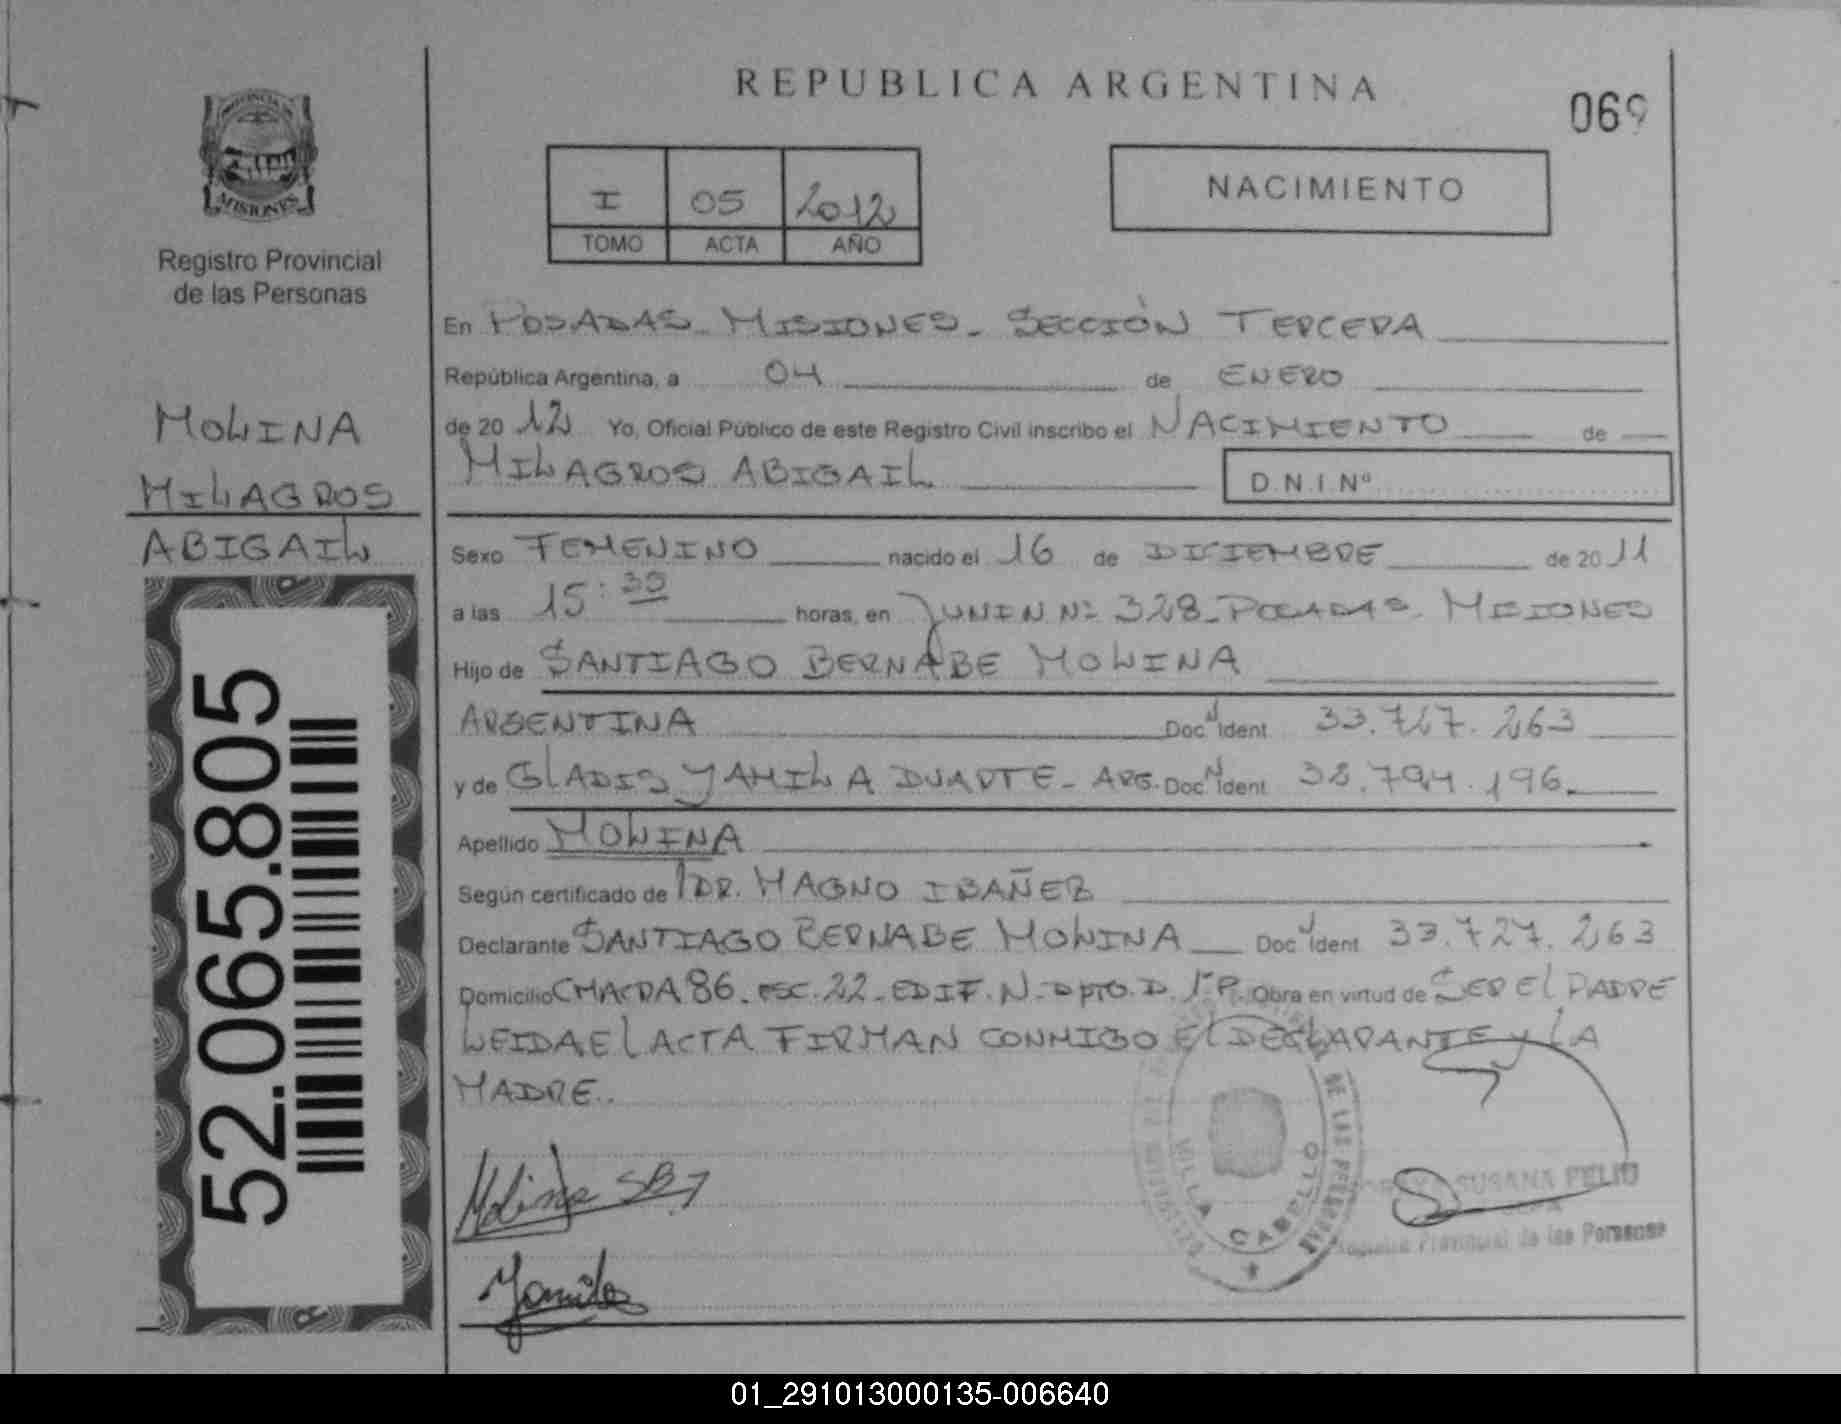 REPUBLICA ARGENTINA
069
PROVINCIA DE
MISIONES
Registro Provincial
de las Personas
I 05 2012
TOMO ACTA AÑO
NACIMIENTO
MOLINA
MILAGROS
ABIGAIL
52.065.805
En POSADAS - MISIONES - SECCIÓN TERCERA
República Argentina, a 04 de ENERO
de 2012 Yo, Oficial Público de este Registro Civil inscribo el NACIMIENTO de
MILAGROS ABIGAIL D.N.I Nº
Sexo FEMENINO nacido el 16 de DICIEMBRE de 2011
a las 15:35 horas, en JUNIN Nº 328 - POSADAS - MISIONES
Hijo de SANTIAGO BERNABE MOLINA
ARGENTINA Doc N Ident 33.727.263
y de GLADIS YAMILA DUARTE - ARG. Doc N Ident 38.794.196.
Apellido MOLINA
Según certificado de DR. MAGNO IBAÑEZ
Declarante SANTIAGO BERNABE MOLINA Doc N Ident 33.727.263
Domicilio CHACRA 86 - ESC. 22 - EDIF. N - DPTO. D. 1ºP. Obra en virtud de SER El PADRE
LEIDA El ACTA FIRMAN CONMIGO El DECLARANTE y LA
MADRE.
Molina SB
Yamila
DE LAS PERSONAS
VILLA CABELLO
SUSANA FELIU
Registro Provincial de las Personas
01_291013000135-006640